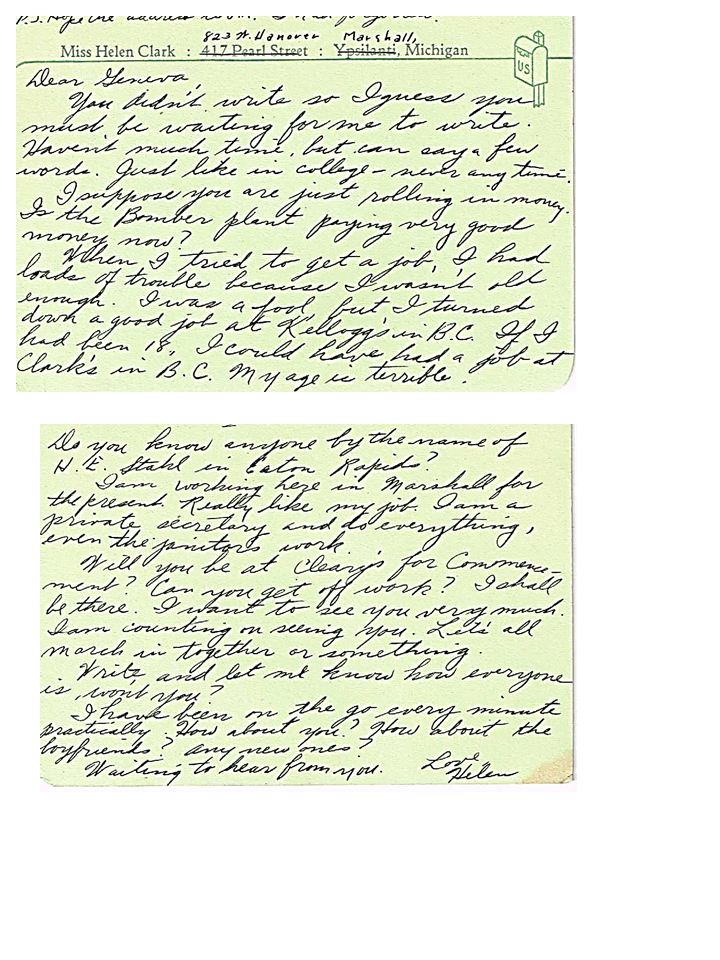 P.S. Hope the address
823 W. Hanover Marshall,
Miss Helen Clark : 417 Pearl Street : Ypsilanti, Michigan
US
Dear Geneva,
You didn't write so I guess you
must be waiting for me to write.
Haven't much time, but can say a few
words. Just like in college - never any time.
I suppose you are just rolling in money.
Is the Bomber plant paying very good
money now?
When I tried to get a job, I had
loads of trouble because I wasn't old
enough. I was a fool, but I turned
down a good job at Kellogg's in B.C. If I
had been 18, I could have had a job at
Clark's in B.C. My age is terrible.
Do you know anyone by the name of
H. E. Stahl in Eaton Rapids?
I am working here in Marshall for
the present. Really like my job. I am a
private secretary and do everything,
even the janitors work.
Will you be at Cleary's for Commence-
ment? Can you get off work? I shall
be there. I want to see you very much.
I am counting on seeing you. Let's all
march in together or something.
Write and let me know how everyone
is, won't you?
I have been on the go every minute
practically. How about you? How about the
boyfriends? Any new ones?
Waiting to hear from you. Love,
Helen